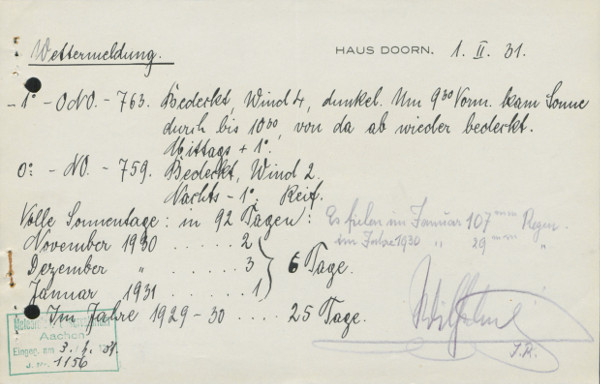 Wettermeldung.
HAUS DOORN. 1. II. 31.
- 1° - ONO. - 763. Bedeckt, Wind 4, dunkel. Um 9³⁰ Vorm. kam Sonne
durch bis 10³⁰, von da ab wieder bedeckt.
Mittags + 1°.
0° - NO. - 759. Bedeckt, Wind 2.
Nachts - 1°, Reif.
Volle Sonnentage: in 92 Tagen:
Es fielen im Januar 107 mm Regen
im Jahre 1930 " 29 mm "
November 1930 . . . . . . 2
Dezember " . . . . . 3 } 6 Tage.
Januar 1931 . . . . . . 1
Im Jahre 1929-30 . . . . 25 Tage.
Wilhelm
I.R.
Aachen
Eingeg. am 3. 2. 31.
J. Nr. 1156